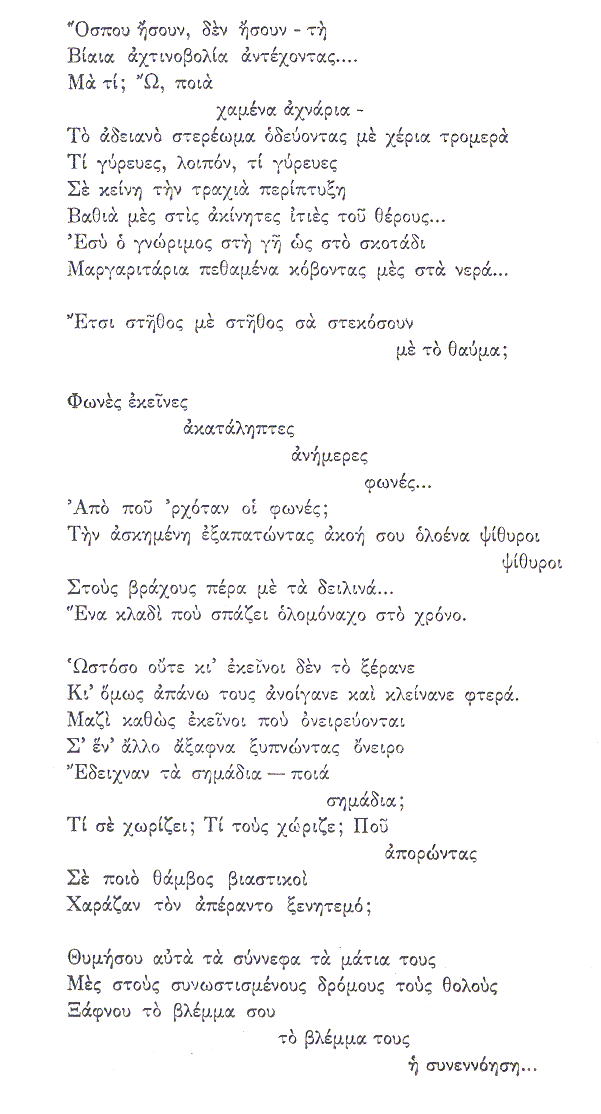 Ὅσπου ἤσουν, δὲν ἤσουν - τὴ
Βίαια ἀχτινοβολία ἀντέχοντας....
Μὰ τί; Ὤ, ποιὰ
χαμένα ἀχνάρια -
Τὸ ἀδειανὸ στερέωμα ὁδεύοντας μὲ χέρια τρομερὰ
Τί γύρευες, λοιπόν, τί γύρευες
Σὲ κείνη τὴν τραχιὰ περίπτυξη
Βαθιὰ μὲς στὶς ἀκίνητες ἰτιὲς τοῦ θέρους...
Ἐσὺ ὁ γνώριμος στὴ γῆ ὡς στὸ σκοτάδι
Μαργαριτάρια πεθαμένα κόβοντας μὲς στὰ νερά...

Ἔτσι στῆθος μὲ στῆθος σὰ στεκόσουν
μὲ τὸ θαύμα;

Φωνὲς ἐκεῖνες
ἀκατάληπτες
ἀνήμερες
φωνές...
Ἀπὸ ποῦ ᾿ρχόταν οἱ φωνές;
Τὴν ἀσκημένη ἐξαπατώντας ἀκοή σου ὁλοένα ψίθυροι
ψίθυροι
Στοὺς βράχους πέρα μὲ τὰ δειλινά...
Ἕνα κλαδὶ ποὺ σπάζει ὁλομόναχο στὸ χρόνο.

Ὡστόσο οὔτε κι᾿ ἐκεῖνοι δὲν τὸ ξέρανε
Κι᾿ ὅμως ἀπάνω τους ἀνοίγανε καὶ κλείνανε φτερά.
Μαζὶ καθὼς ἐκεῖνοι ποὺ ὀνειρεύονται
Σ᾿ ἕν᾿ ἄλλο ἄξαφνα ξυπνώντας ὄνειρο
Ἔδειχναν τὰ σημάδια — ποιά
σημάδια;
Τί σὲ χωρίζει; Τί τοὺς χώριζε; Ποῦ
ἀπορώντας
Σὲ ποιὸ θάμβος βιαστικοὶ
Χαράζαν τὸν ἀπέραντο ξενητεμό;

Θυμήσου αὐτὰ τὰ σύννεφα τὰ μάτια τους
Μὲς στοὺς συνωστισμένους δρόμους τοὺς θολοὺς
Ξάφνου τὸ βλέμμα σου
τὸ βλέμμα τους
ἡ συνεννόηση...